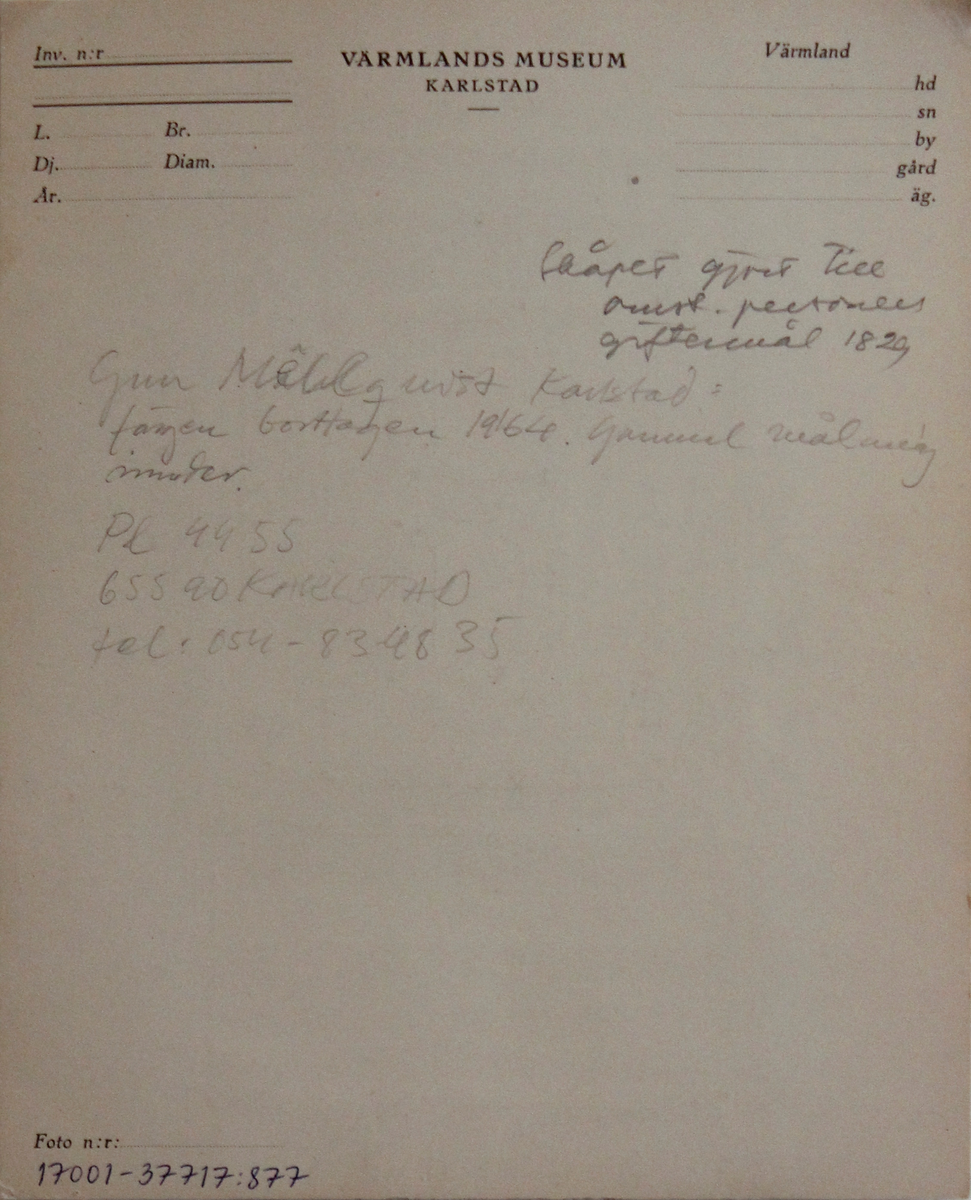 Inv. n:r
VÄRMLANDS MUSEUM
KARLSTAD
Värmland
hd
sn
by
gård
äg.
L. Br.
Dj. Diam.
År.
Skåpet gjort till
omst. personers
giftermål 1829
Gun Mählqvist Karlstad:
färgen borttagen 1964. Gammal målning
under.
Pl 4455
655 90 KARLSTAD
tel: 054-83 48 35
Foto n:r:
17001-37717:877